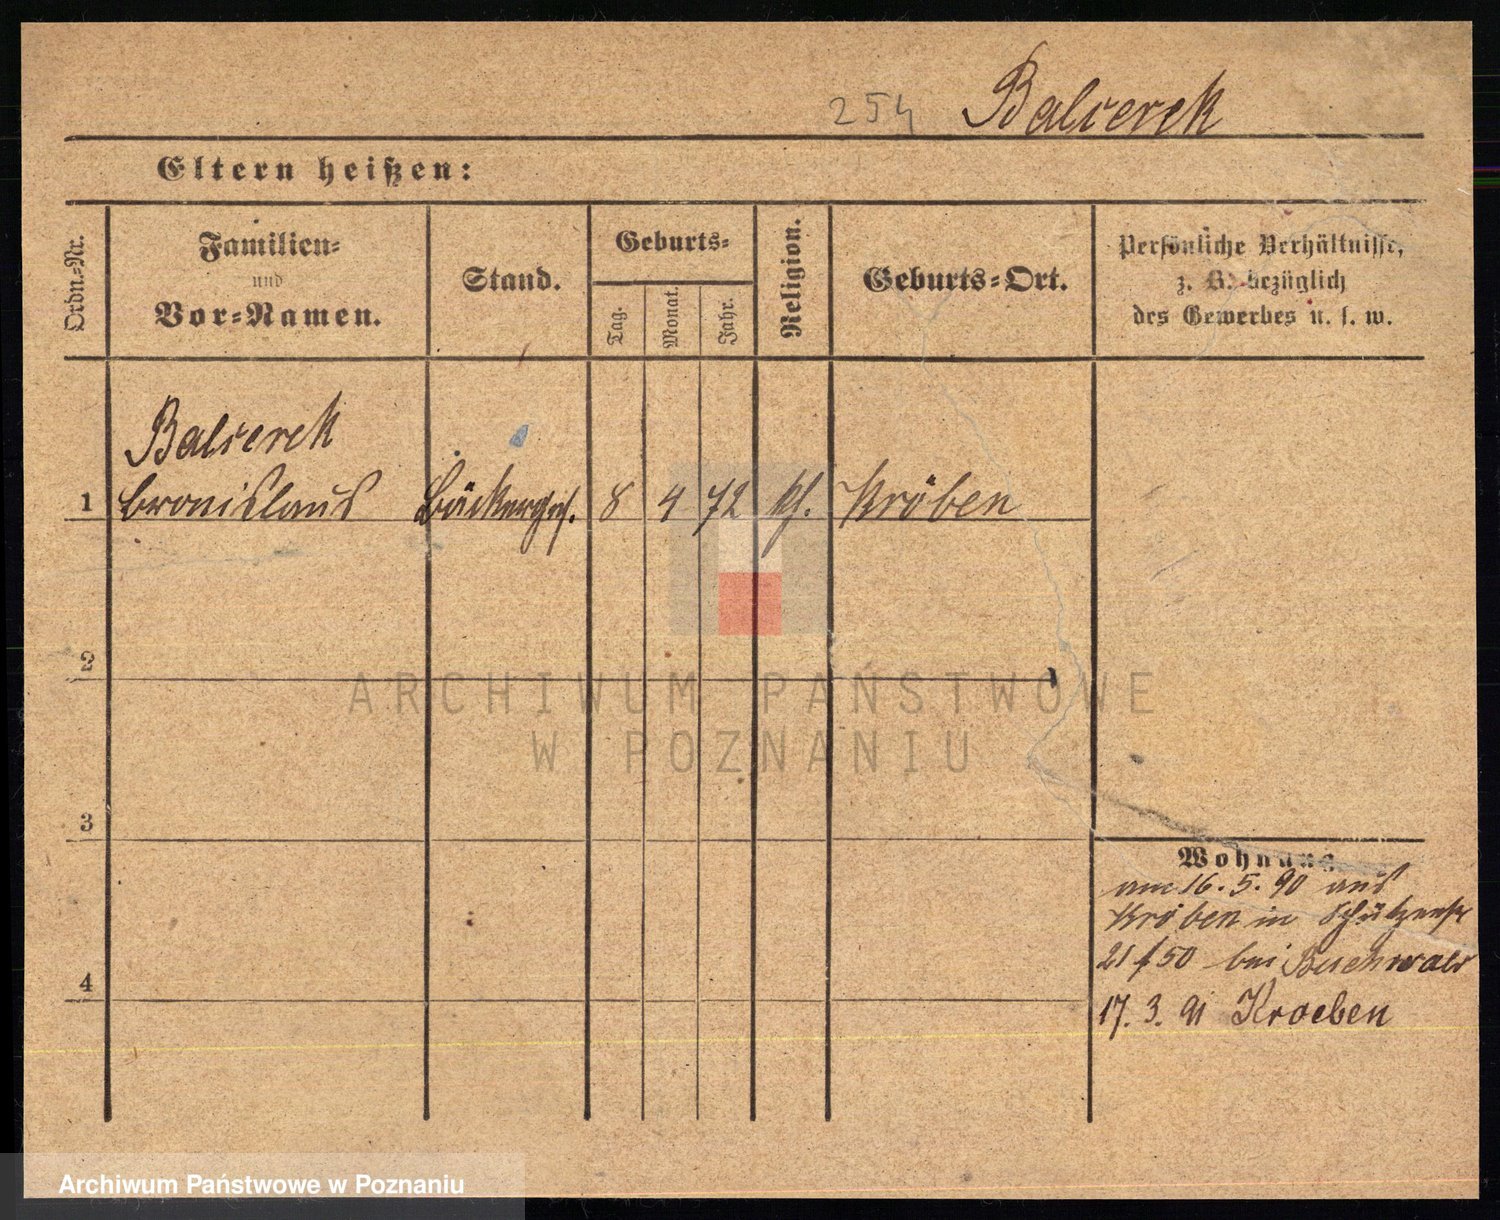 254 Balcerek
Eltern heißen:
Ordn.-Nr.
Familien-
und
Vor-Namen.
Stand.
Geburts-
Tag.
Monat.
Jahr.
Religion.
Geburts-Ort.
Persönliche Verhältnisse,
z. B. bezüglich
des Gewerbes u. s. w.
Balcerek
1 Bronislaus Bäckerges. 8 4 72 kth. Kröben
2
3
4
Wohnung
am 16. 5. 90 aus
Kröben in Schützenstr
21 f 50 bei Buchwald
17. 3. 91 Kroeben
ARCHIWUM PAŃSTWOWE
W POZNANIU
Archiwum Państwowe w Poznaniu